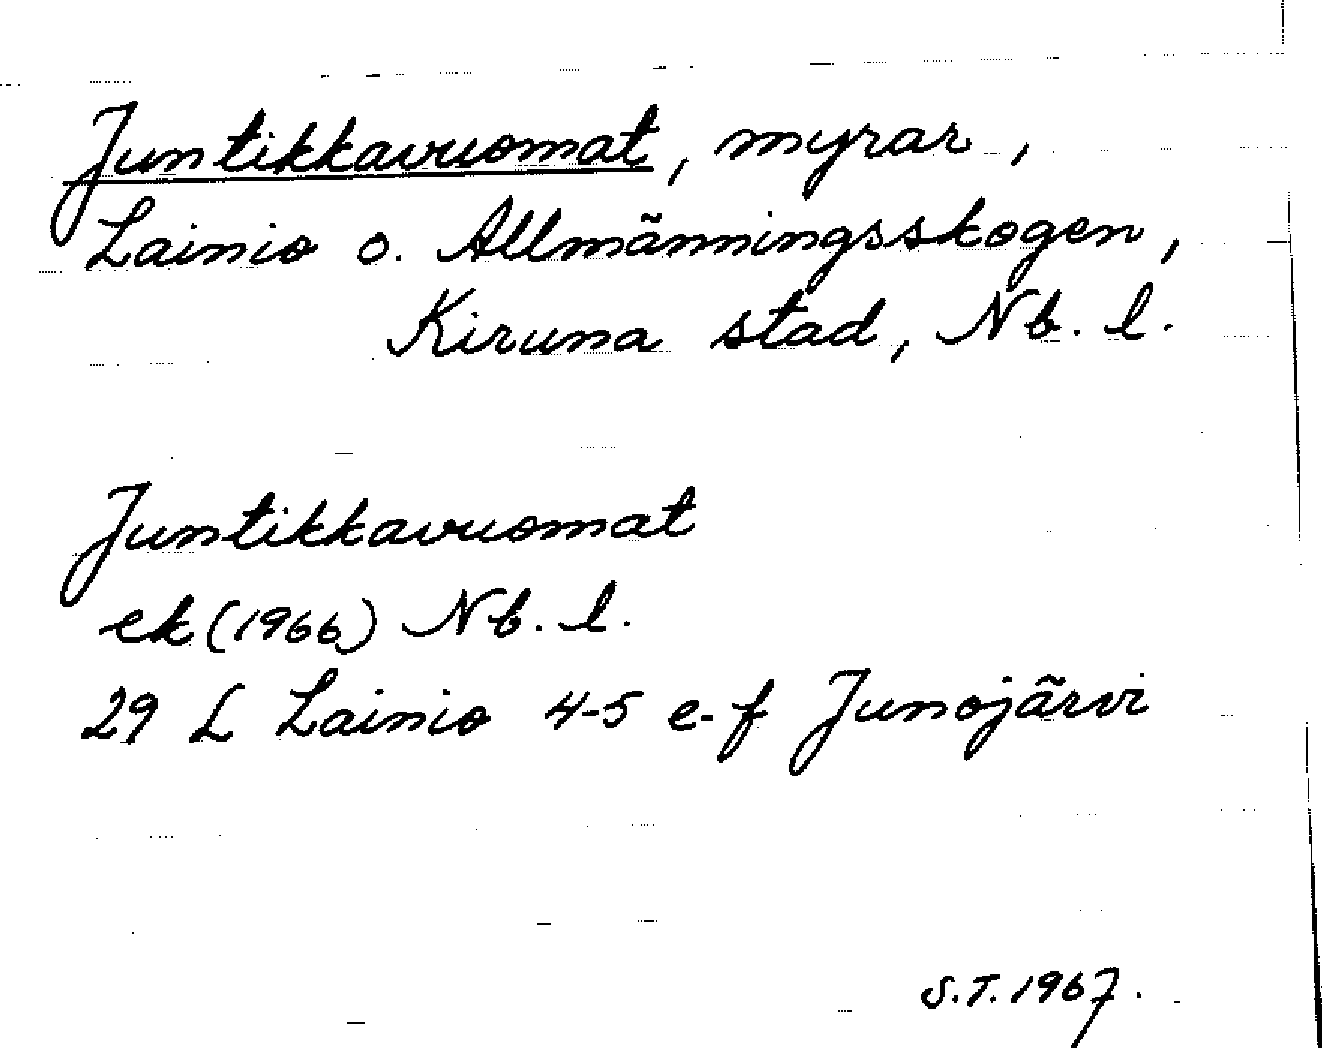 Juntikkavuomat, myrar,
Lainio o. Allmänningsskogen,
Kiruna stad, Nb. l.
Juntikkavuomat
ek (1966) Nb. l.
29 L Lainio 4-5 e-f Junojärvi
S.T. 1967.